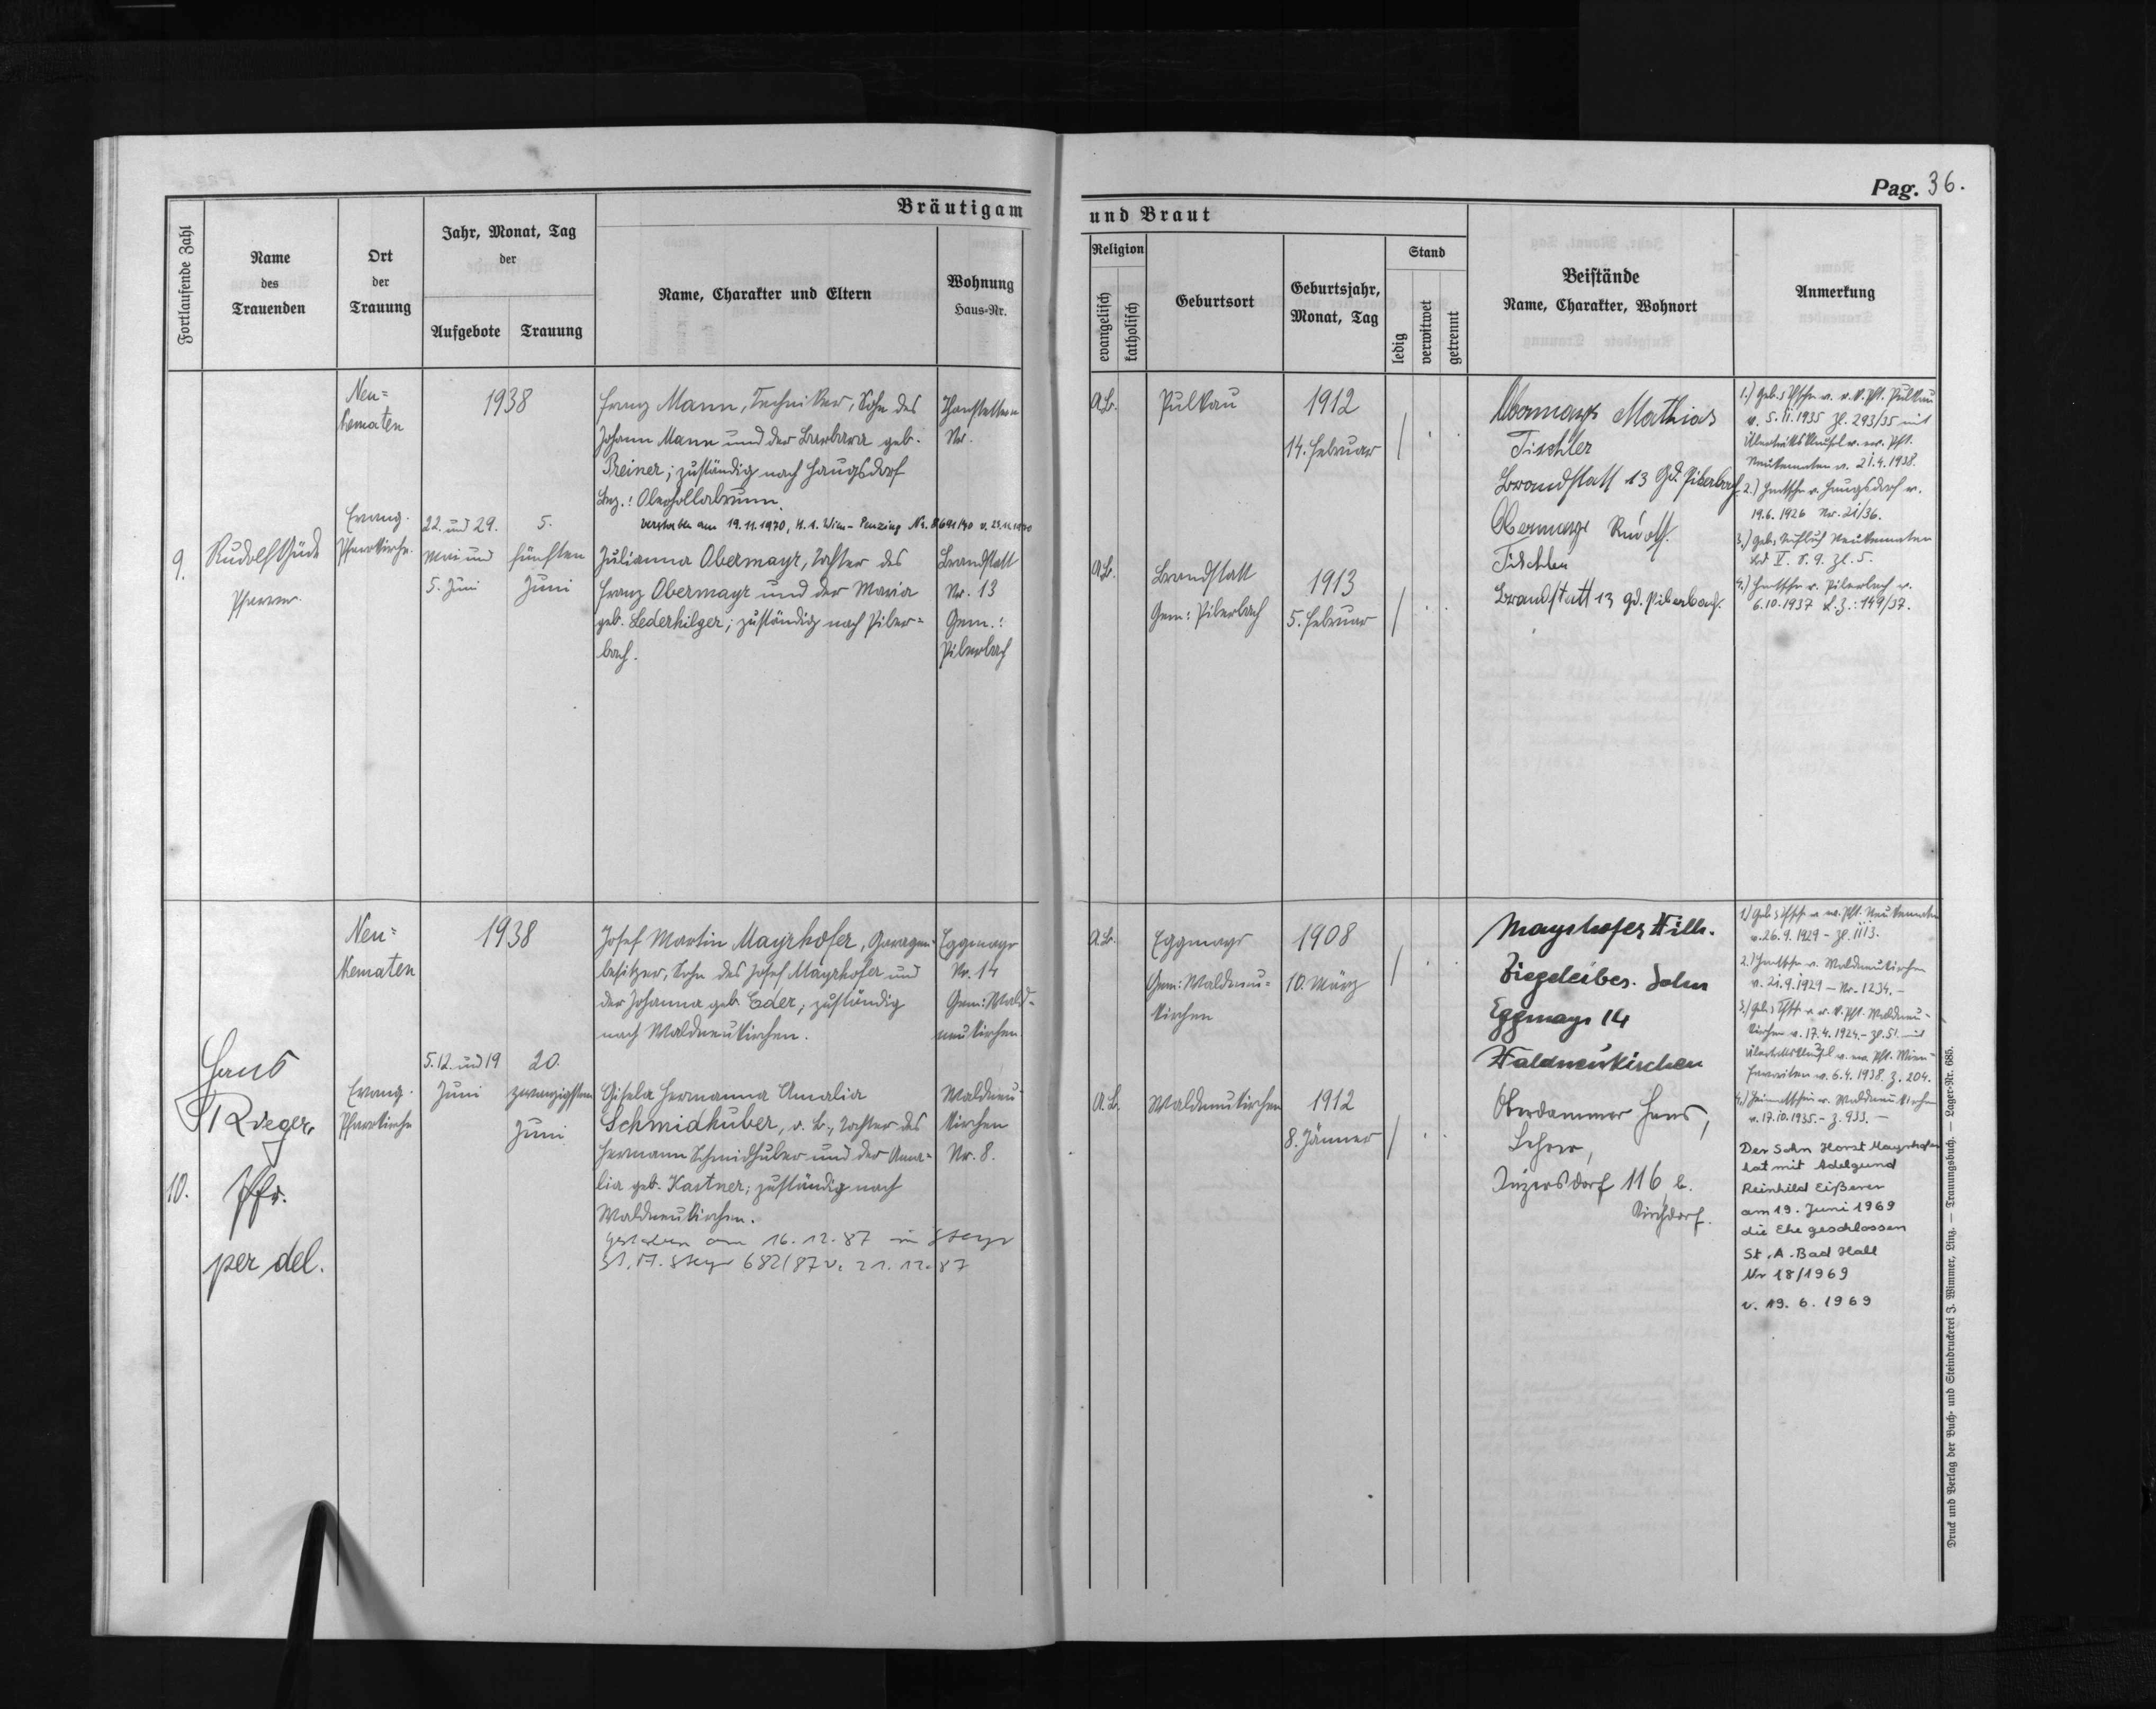 Pag. 36.
Bräutigam und Braut
Fortlaufende Zahl
Name des Trauenden
Ort der Trauung
Jahr, Monat, Tag der
Aufgebote
Trauung
Name, Charakter und Eltern
Wohnung
Haus-Nr.
Religion
evangelisch
katholisch
Geburtsort
Geburtsjahr, Monat, Tag
Stand
ledig
verwitwet
getrennt
Beistände
Name, Charakter, Wohnort
Anmerkung
9.
Rudolf
Pfarrer.
Neu=
Kematen
Evang.
Pfarrkirche.
1938
22. und 29.
Mai und
5. Juni
5.
fünften
Juni
Franz Mann, Techniker, Sohn des
Johann Mann und der Barbara geb.
Preiner; zuständig nach Haugsdorf
Bez.: Oberhollabrunn.
Verstorben am 19.11.1970, St. A. Wien-Penzing Nr.
Nr.
Julianna Obermayr, Tochter des
Franz Obermayr und der Maria
geb. Lederhilger; zuständig nach Piber=
bach.
Brandstatt
Nr. 13
Gem.:
Piberbach
A.B.
Pulkau
1912
14. Februar
A.B.
Brandstatt
Gem: Piberbach
1913
5. Februar
Obermayr Mathias
Tischler
Brandstatt 13 Gd. Piberbach
Obermayr Rudolf.
Tischler
Brandstatt 13 Gd. Piberbach.
1.) Geb. u. Tfsch. v. r. k. Pft. Pulkau
v. 5.11.1935 Zl. 293/35 mit
Übertrittsklausel v. ev. Pft.
Neukematen v. 21.4.1938.
2.) Heimatsch. v. Haugsdorf v.
19.6.1926 Nr. 21/36.
3.) Geb. Neukematen
Bd V. S. 9. Zl. 5.
4.) Heimatsch. v. Piberbach v.
6.10.1937 Z.: 149/37.
10.
Hans
Rieger,
Pfr.
per del.
Neu=
Kematen
Evang.
Pfarrkirche
1938
5. 12. und 19
Juni
20.
zwanzigsten
Juni
Josef Martin Mayrhofer, Garagen-
besitzer, Sohn des Josef Mayrhofer und
der Johanna geb. Eder; zuständig
nach Waldneukirchen.
Eggmayr
Nr. 14
Gem: Wald-
neukirchen
Gisela Hermanna Amalia
Schmidhuber, o. B., Tochter des
Hermann Schmidhuber und der Ama-
lia geb. Kastner; zuständig nach
Waldneukirchen.
gestorben am 16.12.87 in Steyr
St. A. Steyr 682/87 v. 21.12.87
Waldneu-
kirchen
Nr. 8.
A.B.
Eggmayr
Gem: Waldneu=
kirchen
1908
10. März
A.B.
Waldneukirchen
1912
8. Jänner
Mayrhofer Wilh.
Ziegeleibes. Sohn
Eggmayr 14
Waldneukirchen
Oberdammer Hans,
Lehrer,
Inzersdorf 116 b.
Kirchdorf.
1.) Geb. u. Tfsch. v. ev. Pft. Neukematen
v. 26.9.1929 – Zl. 1113.
2.) Heimatsch. v. Waldneukirchen
v. 21.9.1929 – Nr. 1234. –
3.) Geb. u. Tfsch. v. r. k. Pft. Waldneu-
kirchen v. 17.4.1924 – Zl. 51. mit
Übertrittsklausel v. ev. Pft. Wien-
Favoriten v. 6.4.1938. Z. 204.
4.) Heimatschein v. Waldneukirchen
v. 17.10.1935. – Z. 933. –
Der Sohn Horst Mayrhofer
hat mit Adelgund
Reinhild Eißerer
am 19. Juni 1969
die Ehe geschlossen
St. A. Bad Hall
Nr 18/1969
v. 19. 6. 1969
Druck und Verlag der Buch- und Steindruckerei J. Wimmer, Linz. — Trauungsbuch. — Lager-Nr. 685.